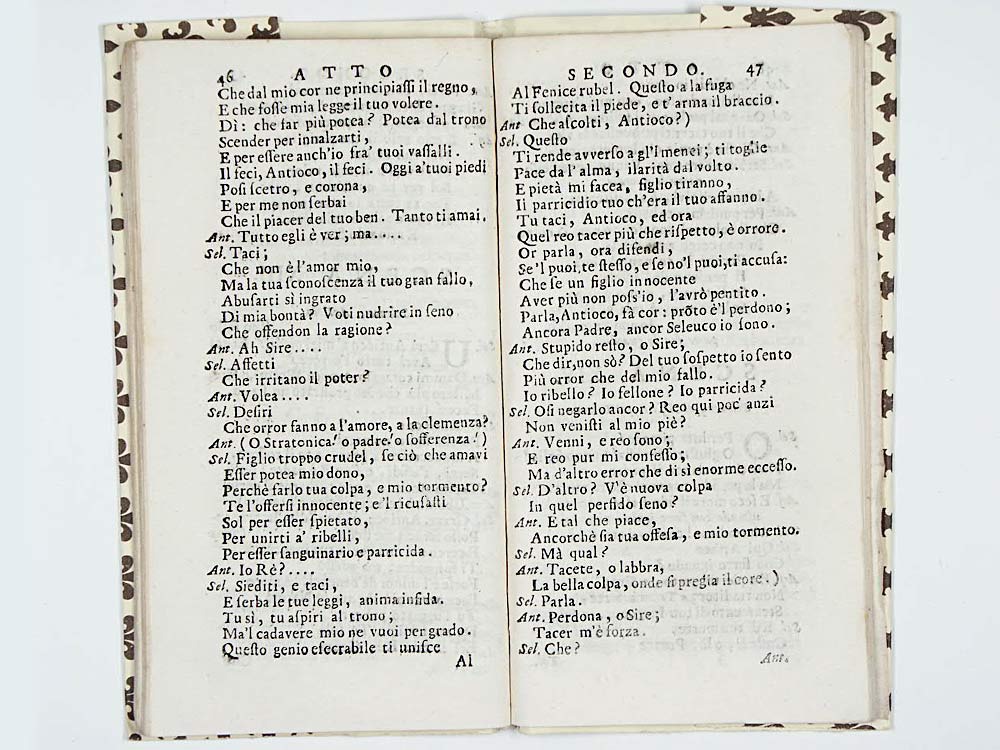 46 ATTO
Che dal mio cor ne principiassi il regno,
E che fosse mia legge il tuo volere.
Dì: che far più potea? Potea dal trono
Scender per innalzarti,
E per essere anch'io fra' tuoi vassalli.
Il feci, Antioco, il feci. Oggi a'tuoi piedi
Posi scetro, e corona,
E per me non serbai
Che il piacer del tuo ben. Tanto ti amai.
Ant. Tutto egli è ver; ma....
Sel. Taci;
Che non è l'amor mio,
Ma la tua sconoscenza il tuo gran fallo,
Abusarti sì ingrato
Di mia bontà? Voti nudrire in seno
Che offendon la ragione?
Ant. Ah Sire....
Sel. Affetti
Che irritano il poter?
Ant. Volea....
Sel. Desiri
Che orror fanno a l'amore, a la clemenza?
Ant. (O Stratonica! o padre! o sofferenza!)
Sel. Figlio troppo crudel, se ciò che amavi
Esser potea mio dono,
Perchè farlo tua colpa, e mio tormento?
Te l'offersi innocente; e 'l ricusasti
Sol per esser spietato,
Per unirti a' ribelli,
Per esser sanguinario e parricida.
Ant. Io Rè?....
Sel. Siediti, e taci,
E serba le tue leggi, anima infida.
Tu sì, tu aspiri al trono;
Ma'l cadavere mio ne vuoi per grado.
Questo genio esecrabile ti unisce
Al
SECONDO. 47
Al Fenice rubel. Questo a la fuga
Ti sollecita il piede, e t'arma il braccio.
Ant Che ascolti, Antioco?)
Sel. Questo
Ti rende avverso a gl'imenei; ti toglie
Pace da l'alma, ilarità dal volto.
E pietà mi facea, figlio tiranno,
Il parricidio tuo ch'era il tuo affanno.
Tu taci, Antioco, ed ora
Quel reo tacer più che rispetto, è orrore.
Or parla, ora difendi,
Se'l puoi, te stesso, e se no'l puoi, ti accusa:
Che se un figlio innocente
Aver più non poss'io, l'avrò pentito.
Parla, Antioco, fà cor: prõto è'l perdono;
Ancora Padre, ancor Seleuco io sono.
Ant. Stupido resto, o Sire;
Che dir, non sò? Del tuo sospetto io sento
Più orror che del mio fallo.
Io ribello? Io fellone? Io parricida?
Sel. Osi negarlo ancor? Reo qui poc' anzi
Non venisti al mio piè?
Ant. Venni, e reo sono;
E reo pur mi confesso;
Ma d'altro error che di sì enorme eccesso.
Sel. D'altro? V'è nuova colpa
In quel perfido seno?
Ant. E tal che piace,
Ancorchè sia tua offesa, e mio tormento.
Sel. Mà qual?
Ant. Tacete, o labbra,
La bella colpa, onde si pregia il core.)
Sel. Parla.
Ant. Perdona, o Sire;
Tacer m'è forza.
Sel. Che?
Ant.